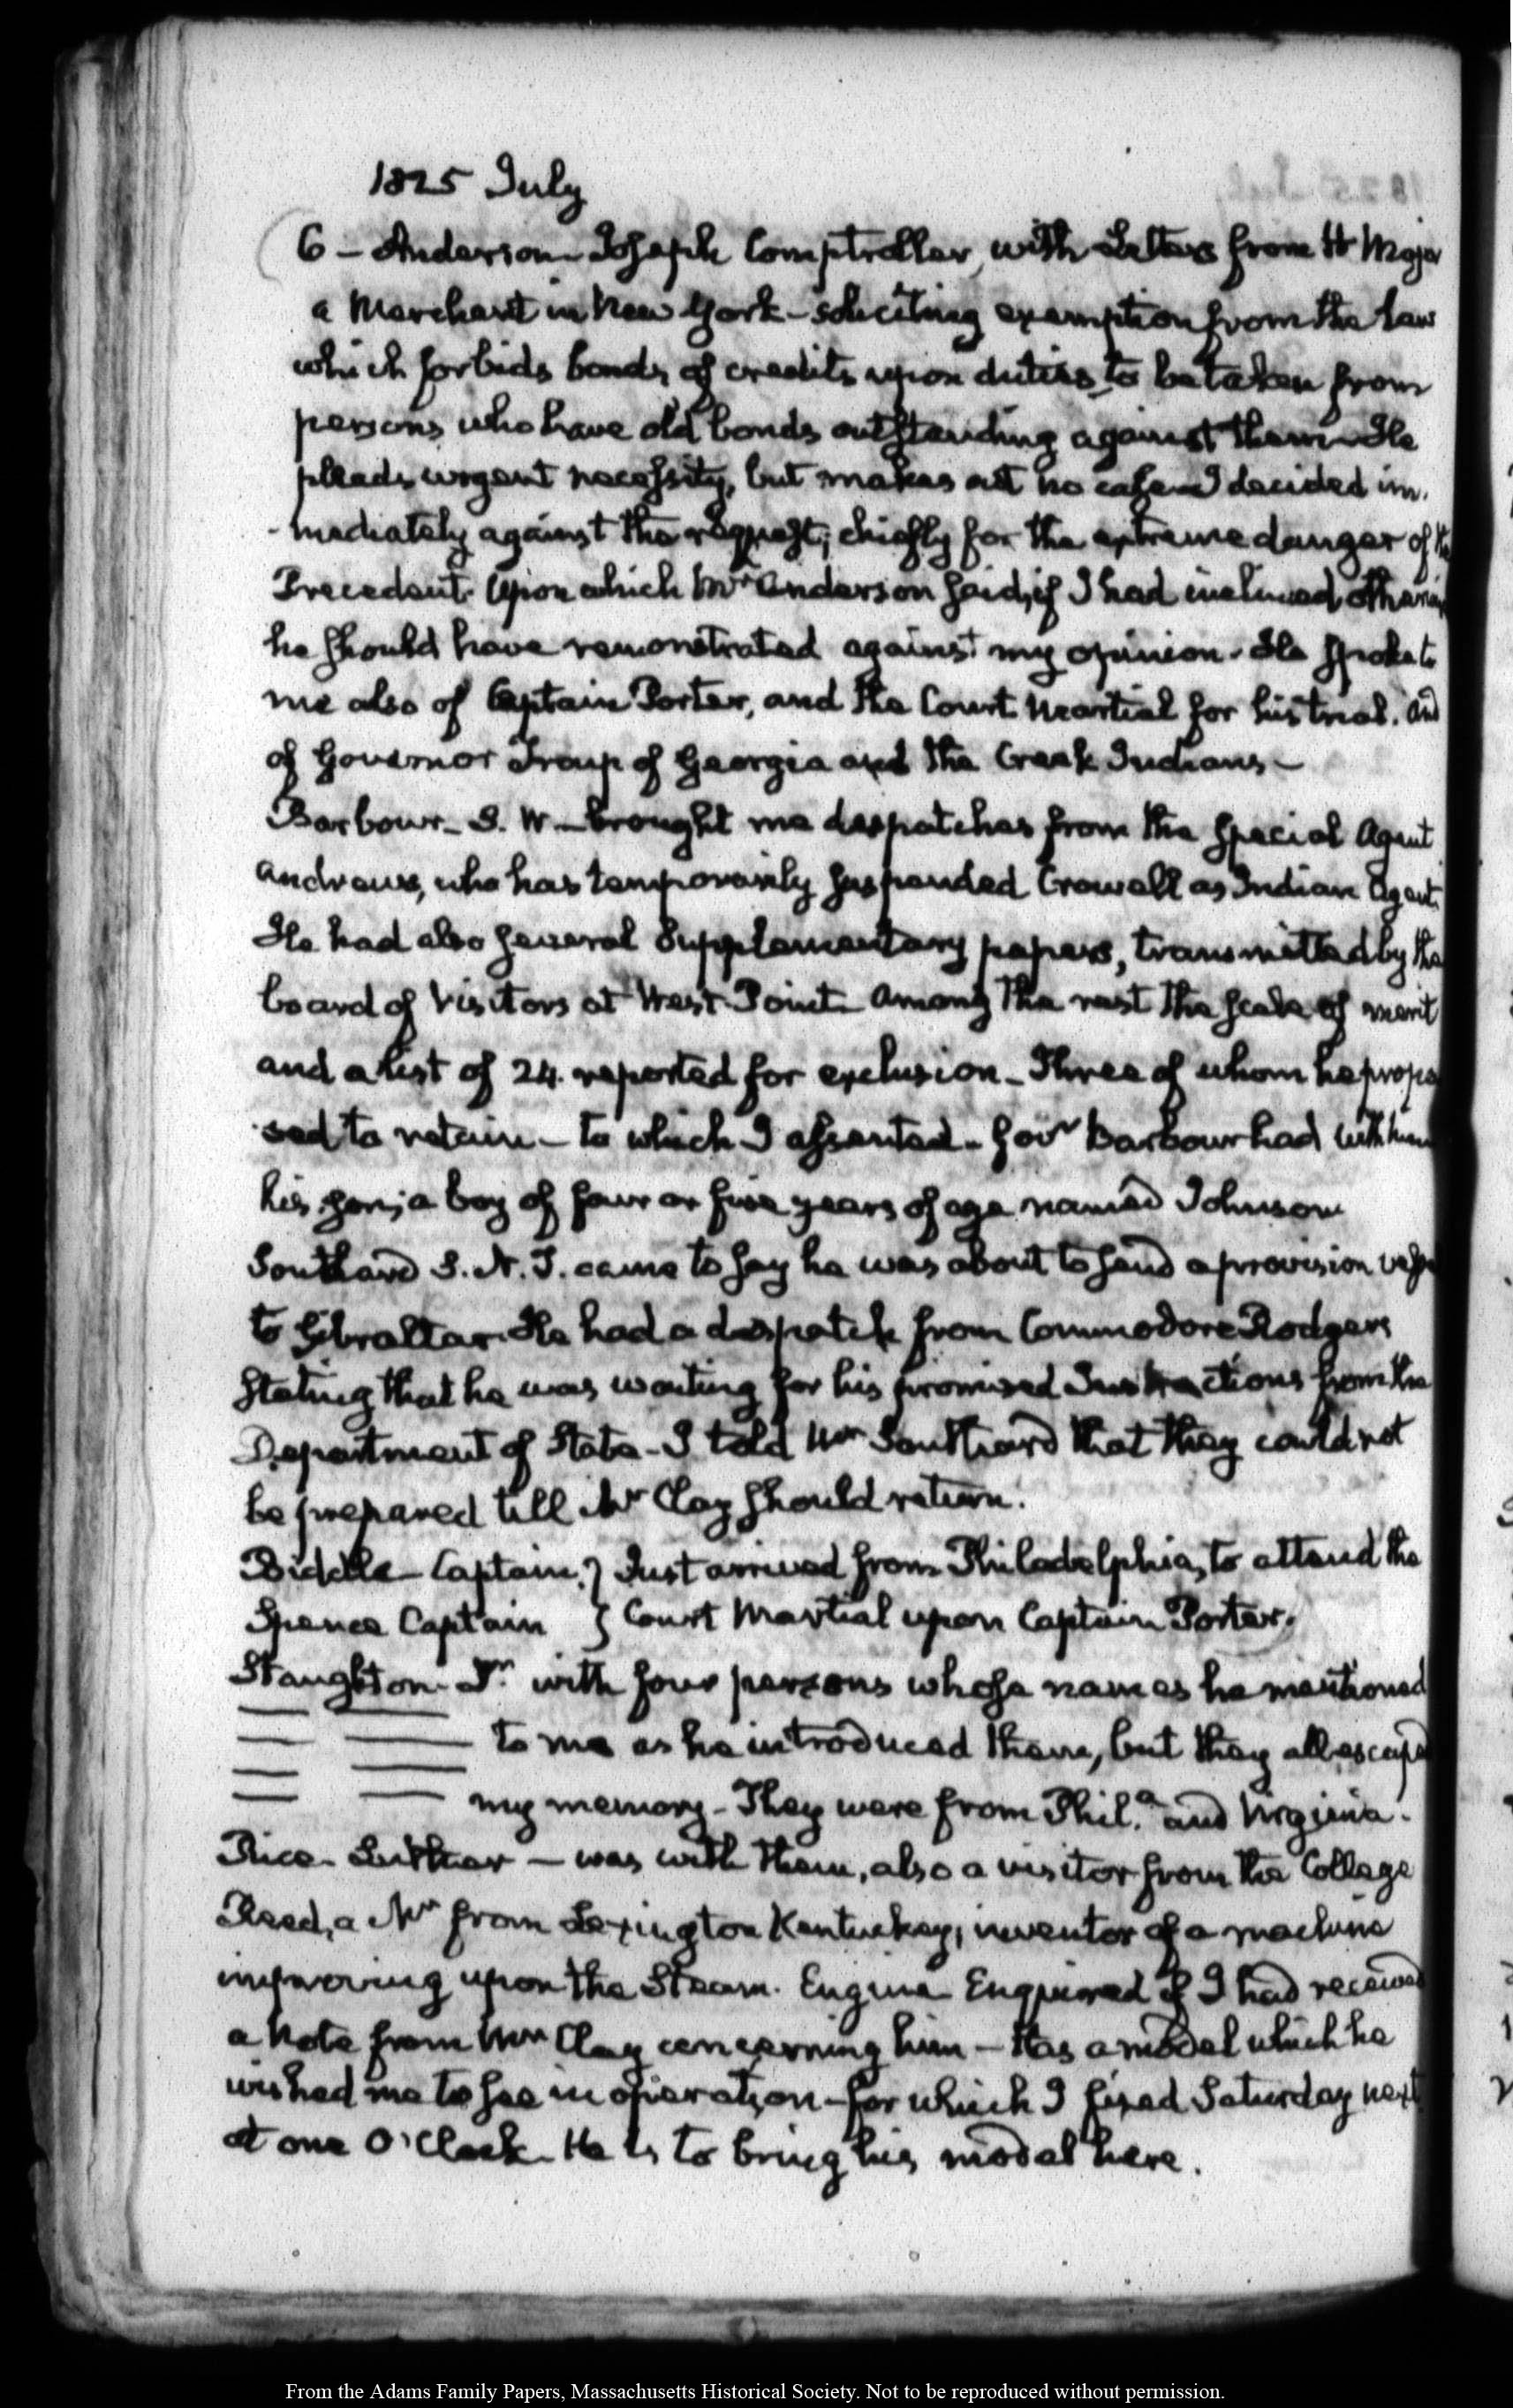 1825 July
6 – Anderson – Joseph Comptroller, with Letters from H
a Merchant in New York – soliciting exemption from the law
which forbids bonds of credits upon duties to be taken from
persons who have old bonds outstanding against them – He
pleads urgent necessity, but makes out no case – I decided im-
-mediately against the request; chiefly for the extreme danger of the
Precedent. Upon which Mr Anderson said, if I had inclined otherwise
he should have remonstrated against my opinion. He spoke to
me also of Captain Porter, and the Court Martial for his trial. And
of Governor Troup of Georgia and the Creek Indians –
Barbour – S. W – brought me despatches from the Special Agent
Andrews, who has temporarily suspended Crowell as Indian Agent.
He had also several Supplementary papers, transmitted by the
board of Visitors at West-Point – Among the rest the scale of merit
and a list of 24. reported for exclusion – Three of whom he propo
sed to retain – to which I assented – Govr Barbour had with him
his son; a boy of four or five years of age named Johnson
Southard S. N. J. came to say he was about to send a provision vesse
to Gibraltar – He had a despatch from Commodore Rodgers
stating that he was waiting for his promised Instructions from the
Department of State – I told Mr Southard that they could not
be prepared till Mr Clay should return.
Biddle – Captain. } Just arrived from Philadelphia, to attend the
Spence Captain } Court Martial upon Captain Porter.
Staughton – Dr. with four persons whose names he mentioned
to me as he introduced them, but they all escaped
my memory – They were from Phila. and Virginia.
Rice – Luther – was with them, also a visitor from the College
Reed, a Mr from Lexington Kentuckey, inventor of a machine
improving upon the Steam. Engine – Enquired if I had received
a Note from Mr Clay concerning him – Has a model which he
wished me to see in operation – for which I fixed Saturday next
at one O'Clock – He is to bring his model here.
From the Adams Family Papers, Massachusetts Historical Society. Not to be reproduced without permission.